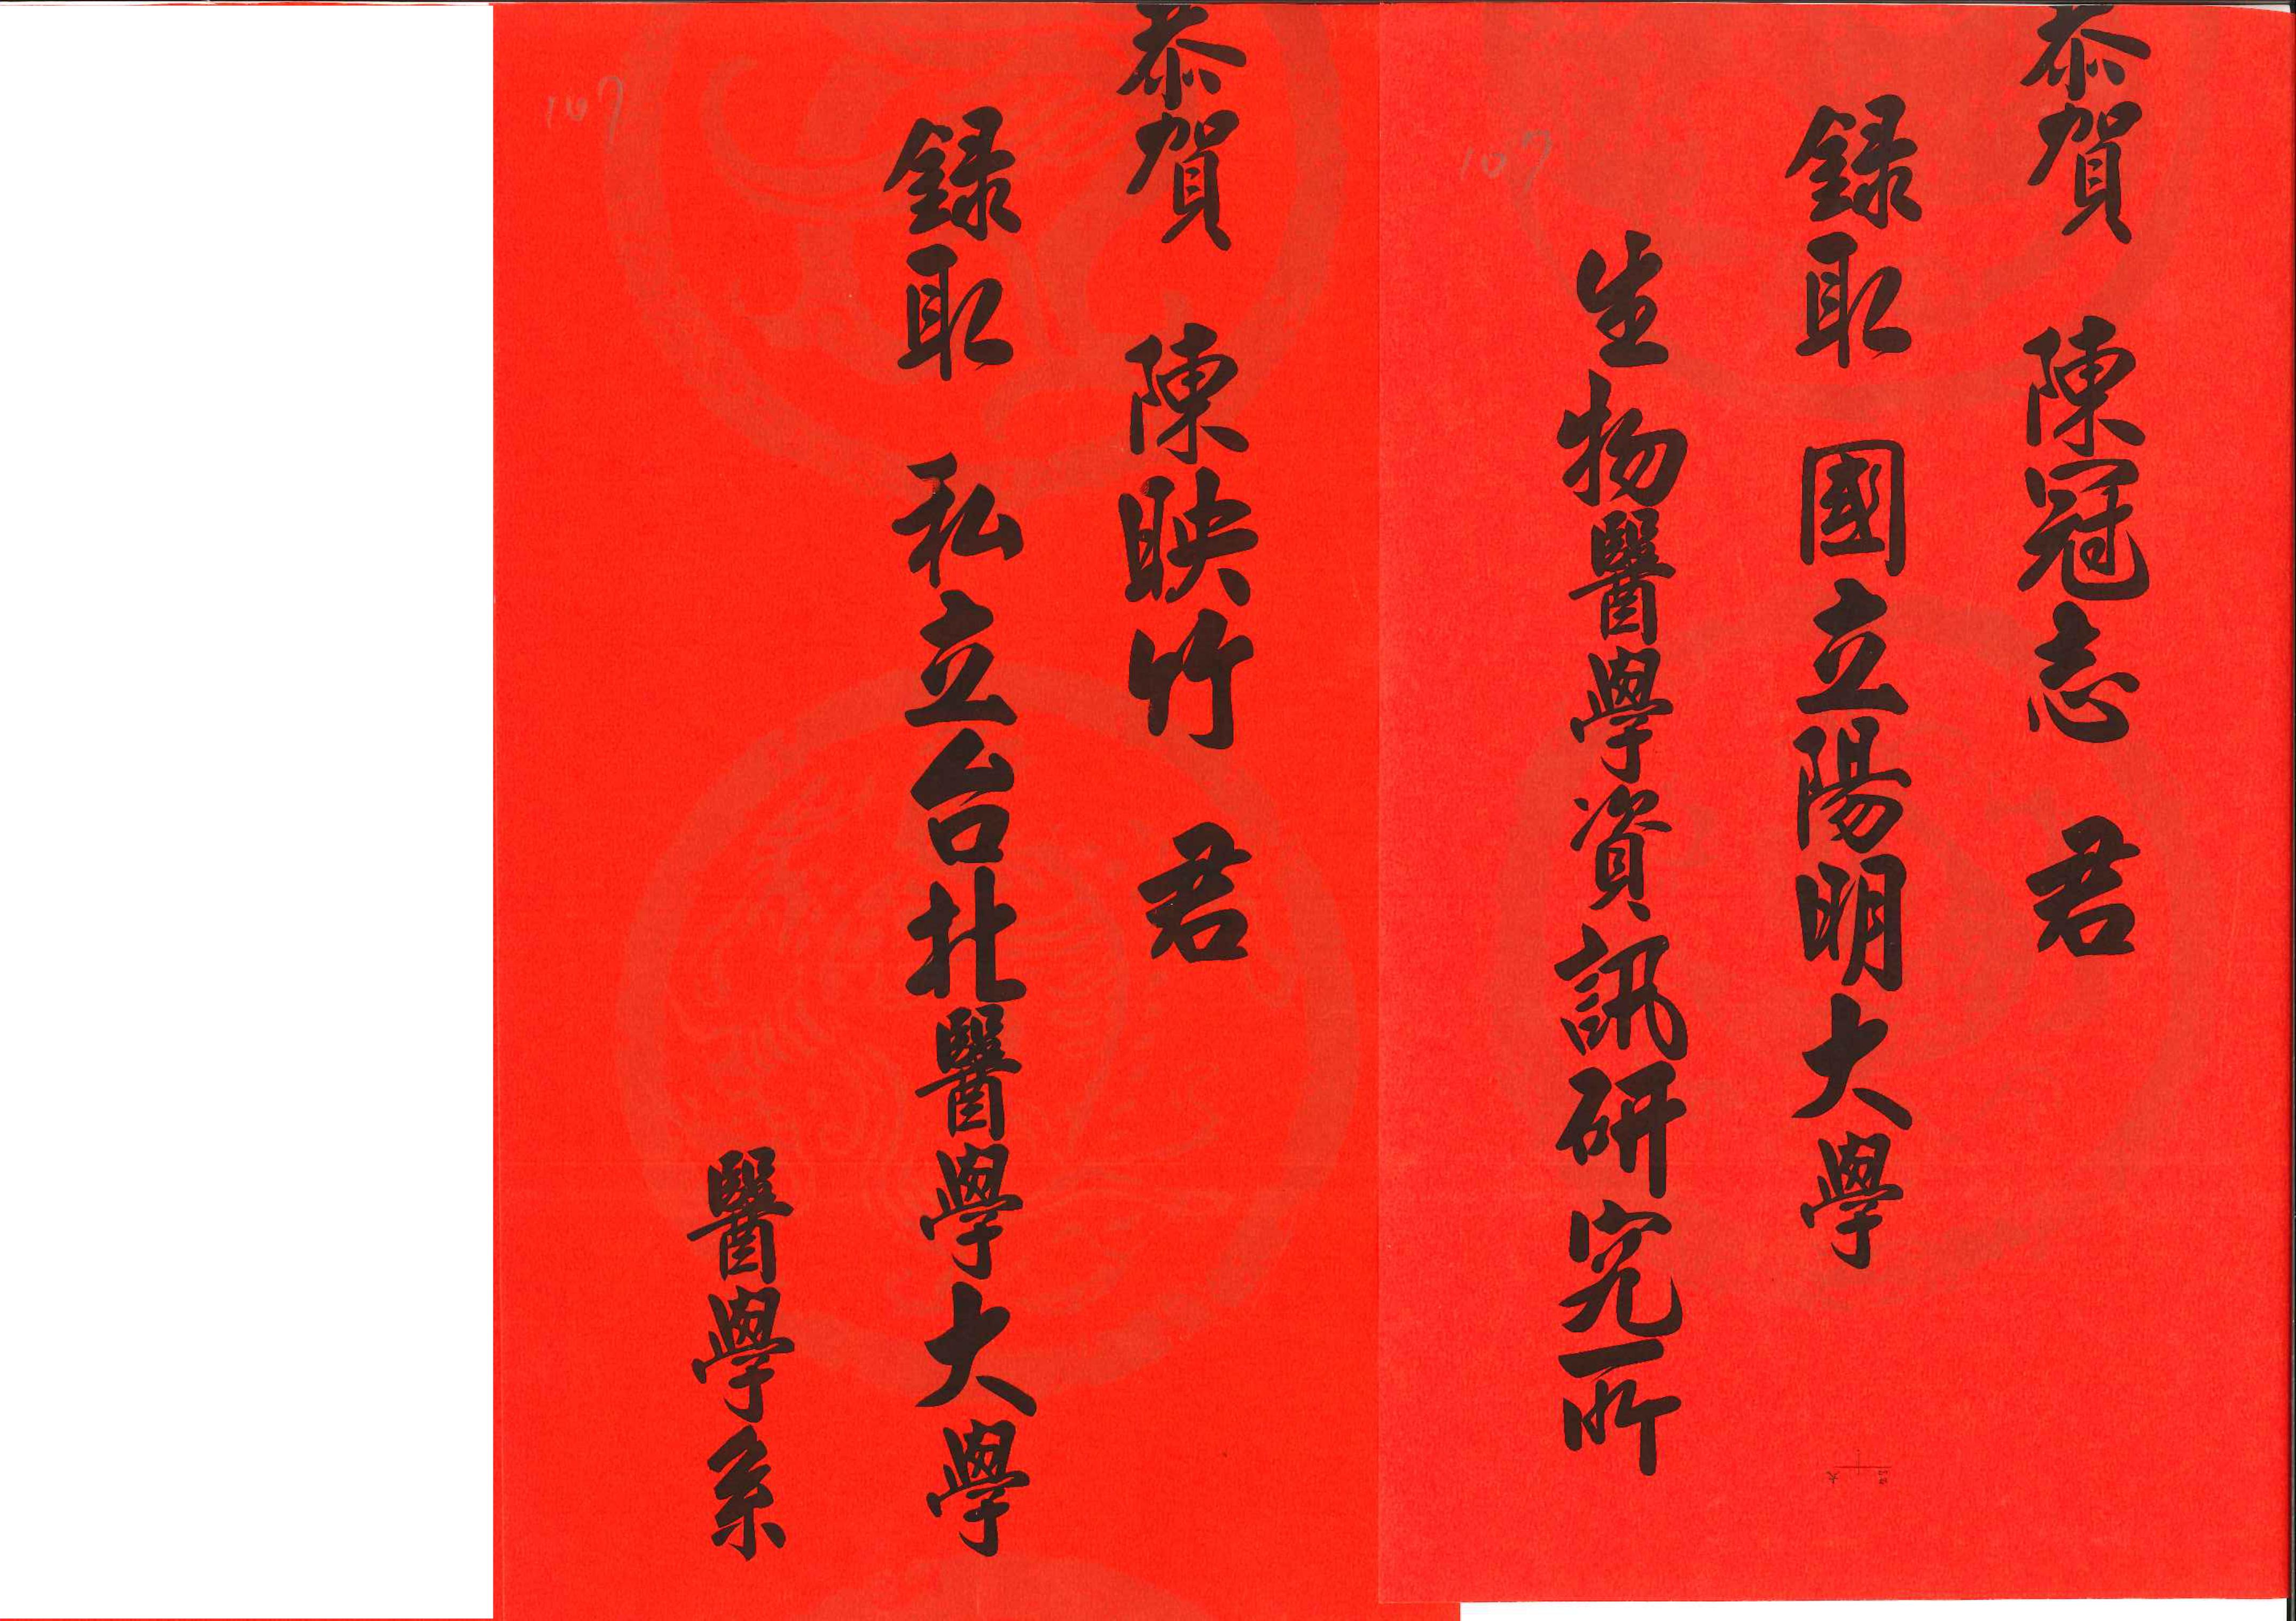 恭賀 陳冠志 君
錄取 國立陽明大學
生物醫學資訊研究所
107
恭賀 陳映竹 君
錄取 私立台北醫學大學
醫學系
107